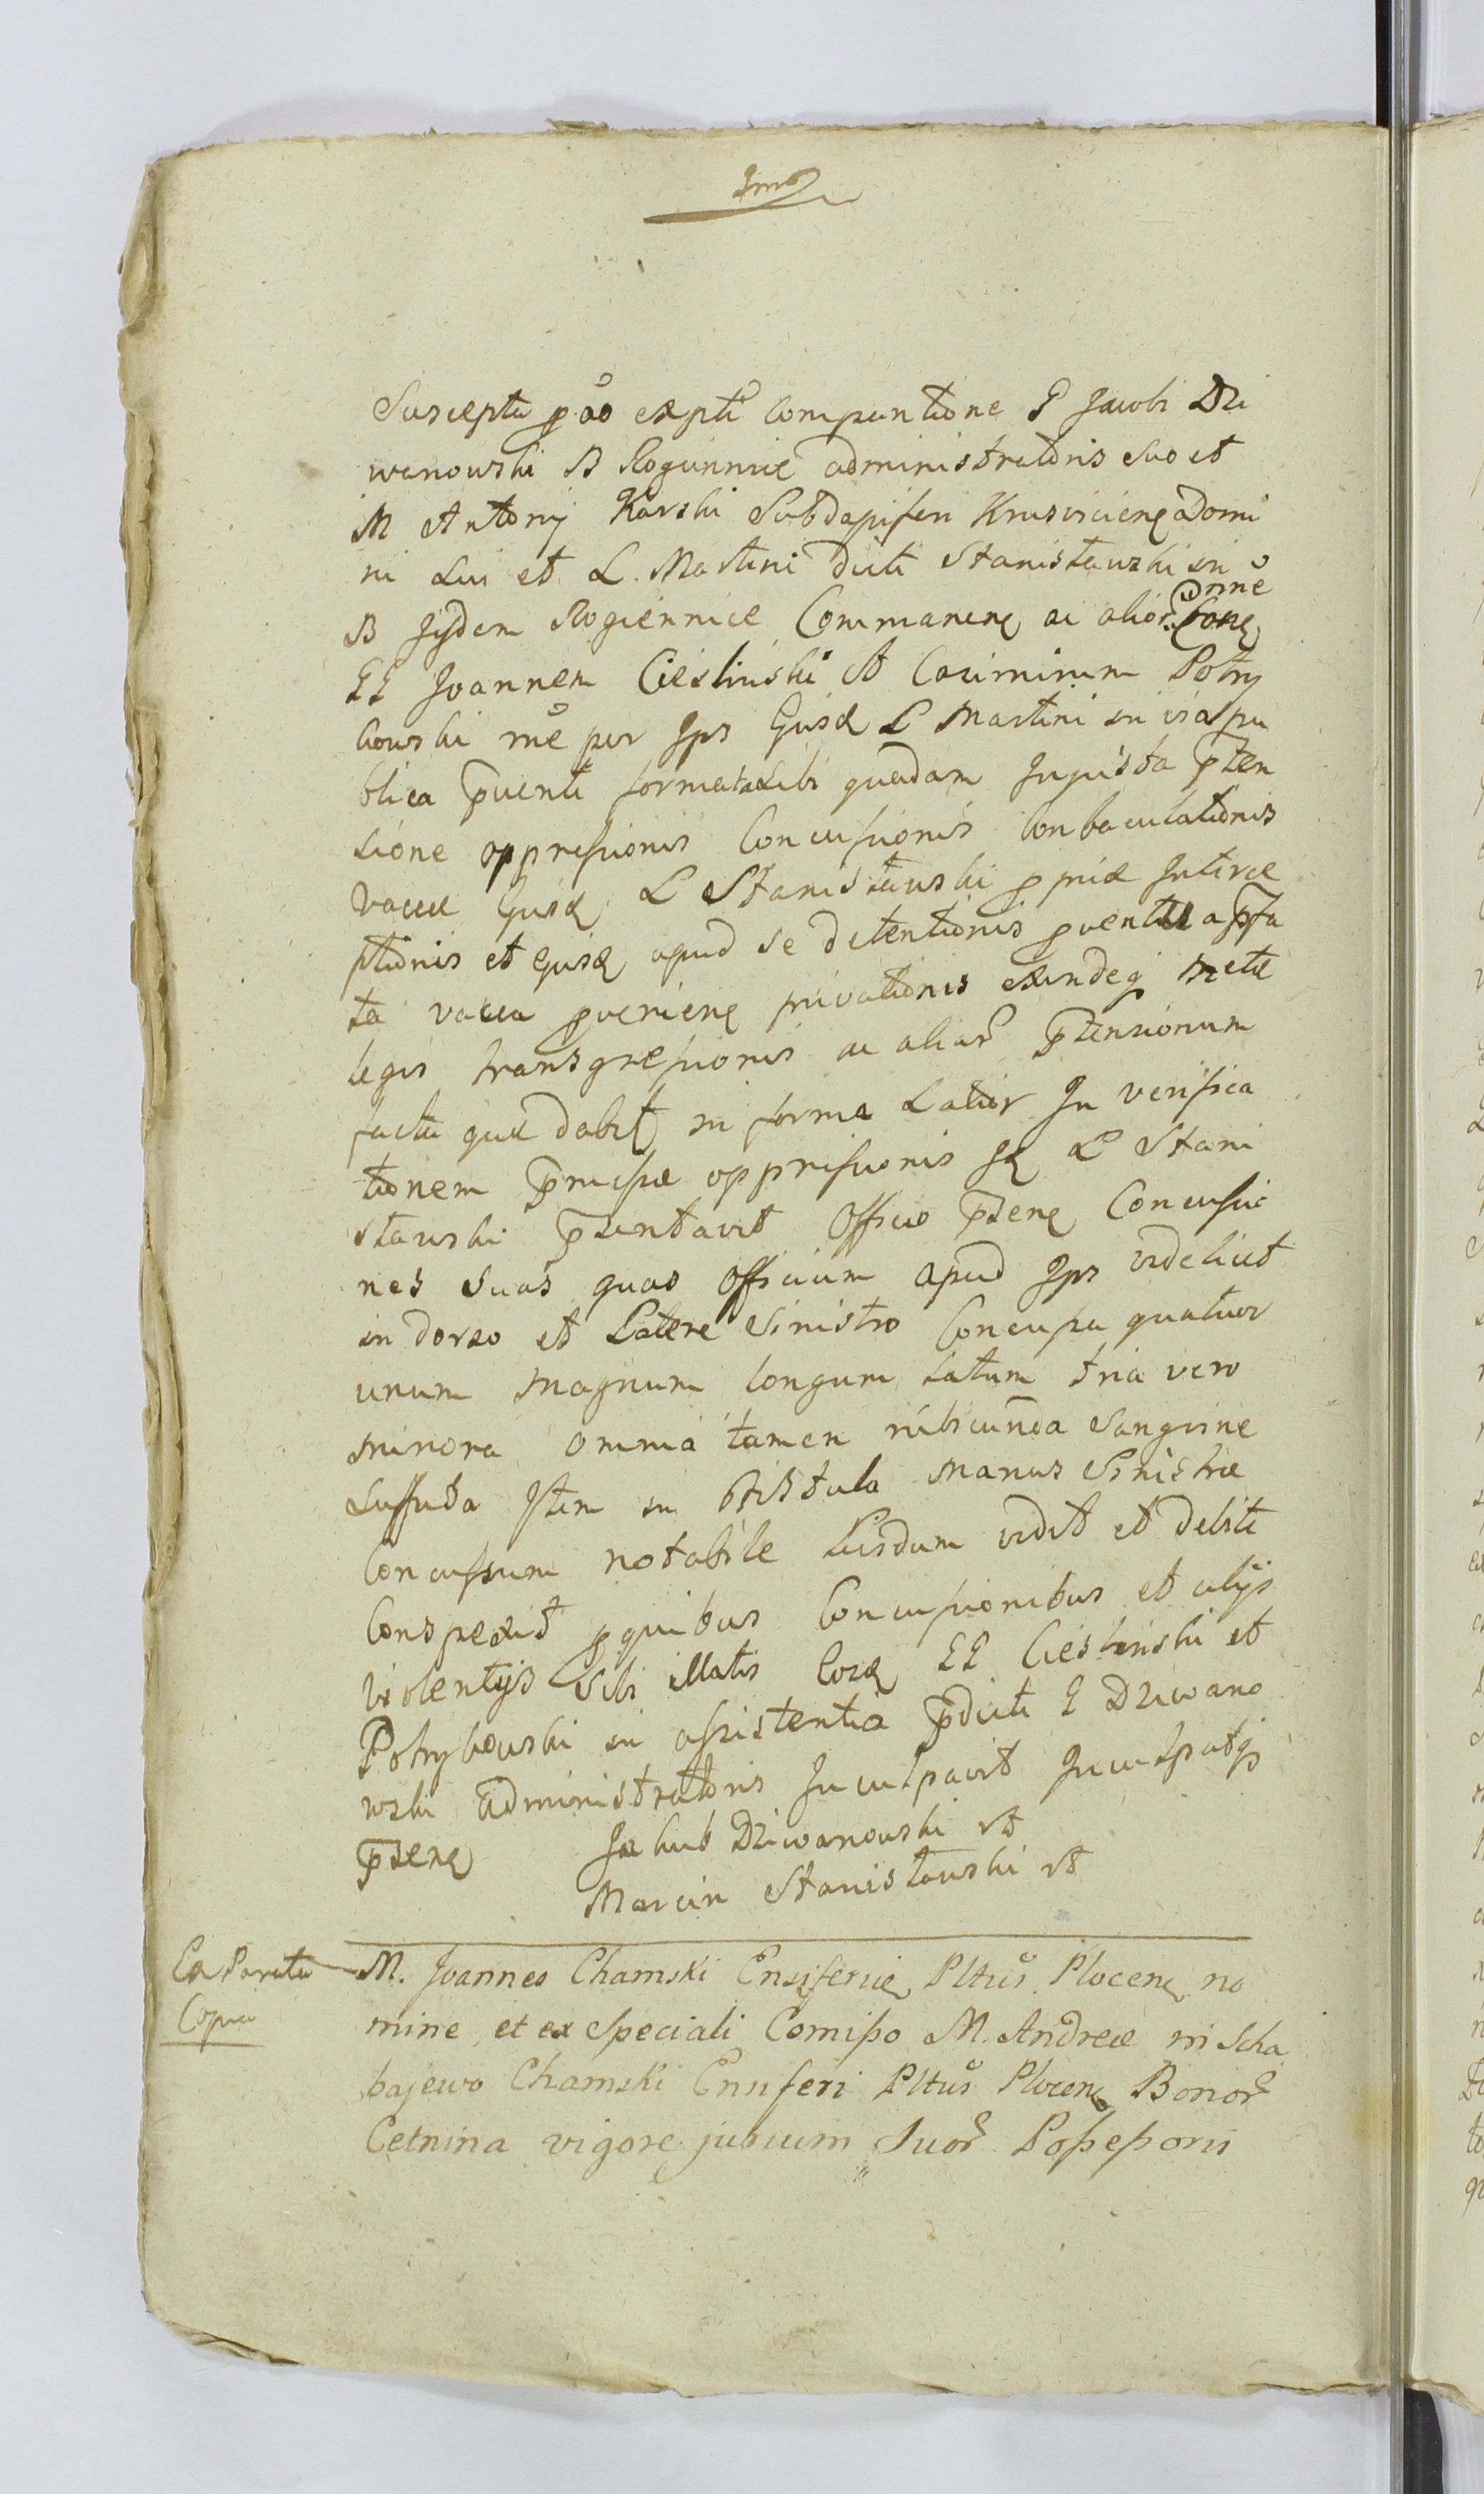 Suscepta p ao expti Comparitione G Jacobi Dzi
wanowski B Rogiennice administratoris suo et
M Antonij Karski Subdapiferi Krusvicien Domi
ni sui et L. Martini dicti Stanisławski in
B Ijsdem Rogiennice Commanen ac alior nne Cone
GG Joannem Ciesliński et Casimirum Potry
kowski me per Ips Ejusd L Martini in via pu
blica pventi formata sibi quadam Injusta pten
sione oppressionis Concussionis Conbaculationis
vaccae Ejusd L Stanisławski ppriae Interce
ptionis et Ejusd apud se detentionis pventae a psta
ta vacca pvenien privationis exindeq metae
legis transgressionis ac aliar ptensionum
facta quae dabit in forma Latior In verifica
tionem pmissae oppressionis Id L Stani
sławski psentavit Officio psen Concussio
nes suas quas Officium apud Ips videlicet
in dorso et Latere Sinistro Concussa quatuor
unum magnum longum latum tria vero
minora omnia tamen rubicunda sangvine
suffusa Item in fistula manus Sinistrae
Concussum notabile Lividum vidit et debite
Conspexit p quibus Concussionibus et alijs
violentijs sibi illatis Eosd GG Ciesliński et
Potrykowski in assistentia pdicti G Dziwano
wski administratoris Inculpavit Inculpatq
psen Jakub Dziwanowski st
Marcin Stanisławski st
Ex Parata
Copia
M. Joannes Chamski Ensiferid Pltus Plocen no
mine et ex speciali Comisso M. Andreae in Scha
bajewo Chamski Ensiferi Pltus Plocen Bonor
Cetnina vigore jurium Suor Possessoris